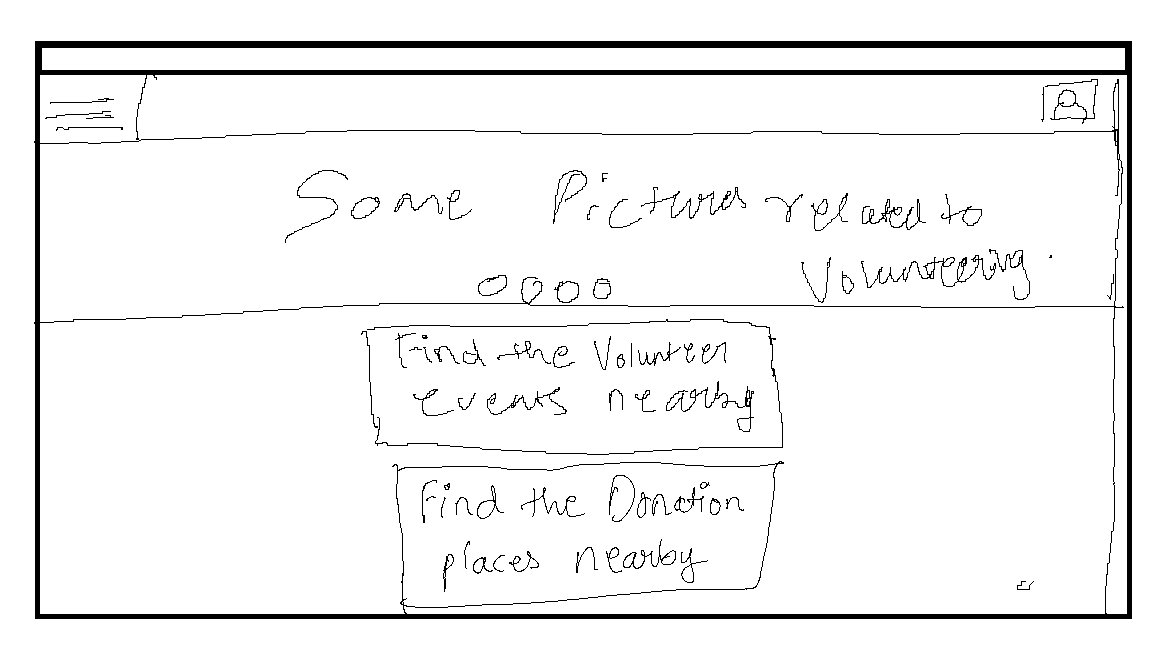 Some Pictures related to
Volunteering.
Find the Volunteer
events nearby
Find the Donation
places nearby